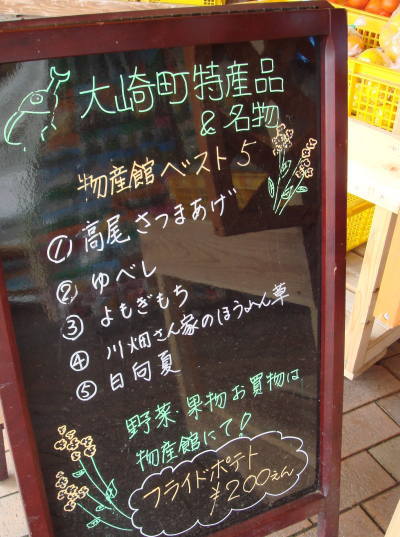 大崎町特産品
&名物
物産館ベスト5
① 高尾さつまあげ
② ゆべし
③ よもぎもち
④ 川畑さん家のほうれん草
⑤ 日向夏
野菜・果物お買物は
物産館にて!
フライドポテト
¥200えん